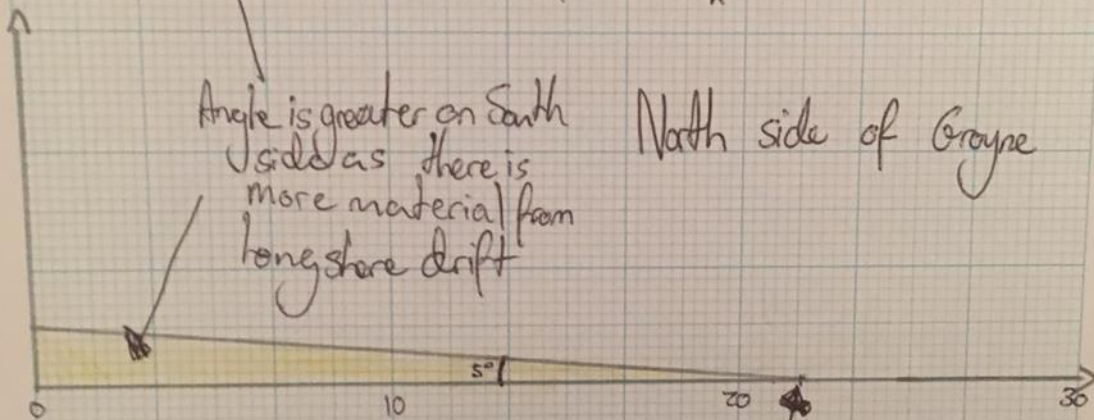 Angle is greater on South
side as there is
more material from
longshore drift
North side of Groyne
5°
0 10 20 30